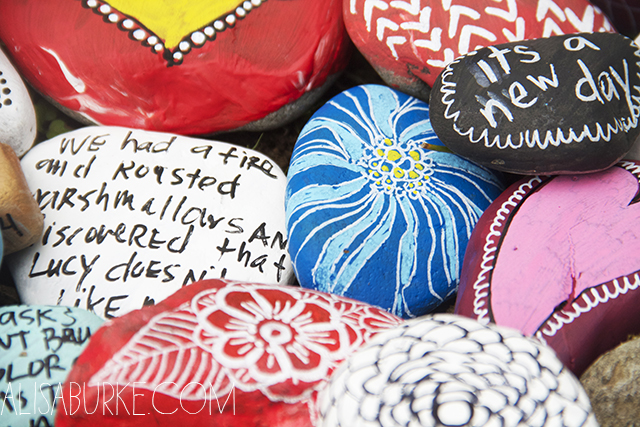 its a
new day
WE had a fire
and Roasted
marshmallows AN
discovered that
LUCY doesN
LIKE
ALISABURKE.COM